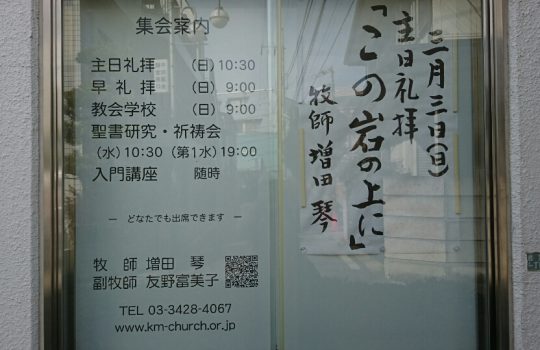 集会案内
主日礼拝 (日) 10:30
早礼拝 (日) 9:00
教会学校 (日) 9:00
聖書研究・祈祷会
(水) 10:30 (第1水) 19:00
入門講座 随時
― どなたでも出席できます ―
牧師 増田 琴
副牧師 友野富美子
TEL 03-3428-4067
www.km-church.or.jp
三月三日(日)
主日礼拝
「この岩の上に」
牧師 増田 琴